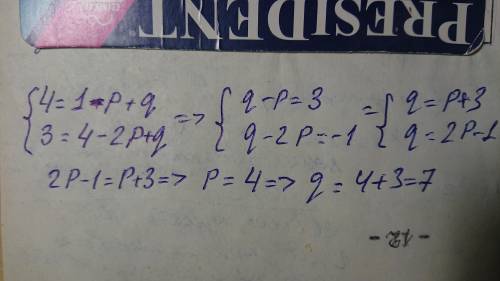 PRESIDENT
{4=1-p+q => {q-p=3 = {q=p+3
{3=4-2p+q {q-2p=-1 {q=2p-1
2p-1=p+3=> p=4=> q=4+3=7
-12-